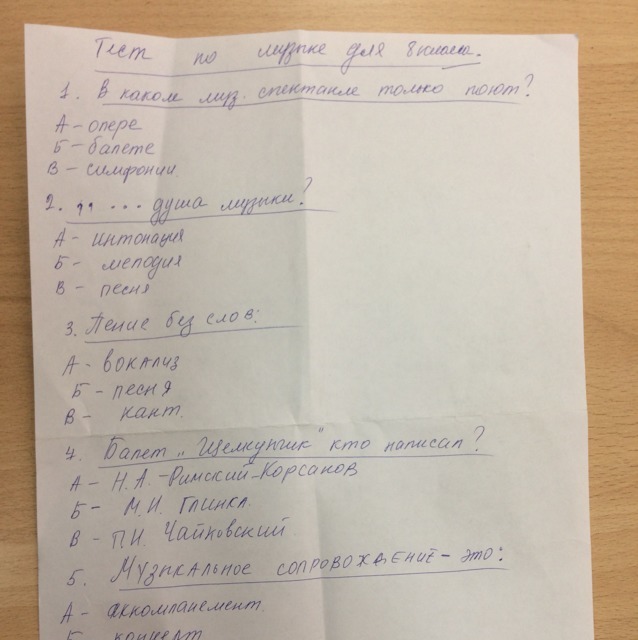 Тест по музыке для 8 класса.
1. В каком муз. спектакле только поют?
А - опере
Б - балете
В - симфонии.
2. „ ... душа музыки?
А - интонация
Б - мелодия
В - песня
3. Пение без слов:
А - вокализ
Б - песня
В - кант.
4. Балет „Щелкунчик" кто написал?
А - Н.А. - Римский-Корсаков
Б - М.И. Глинка.
В - П.И. Чайковский.
5. Музыкальное сопровождение - это:
А - аккомпанемент.
Б концерт